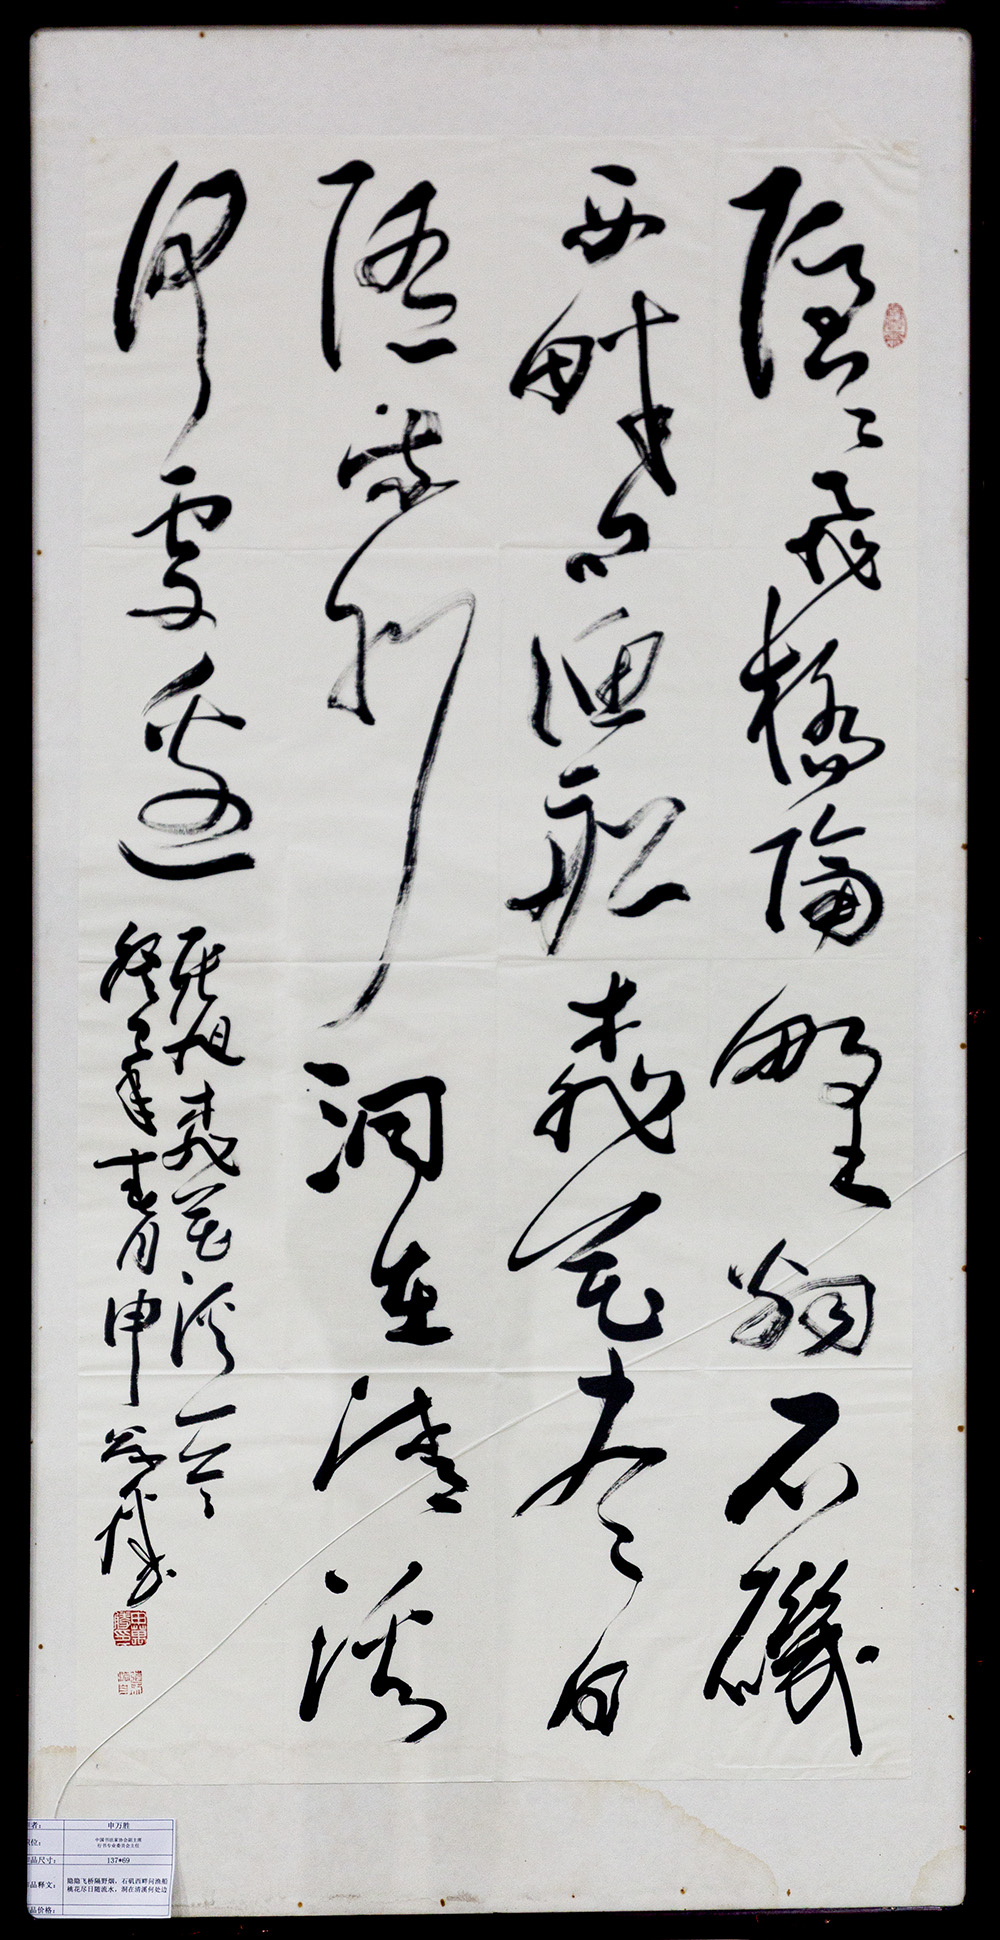 隐〻飞桥隔野烟石矶
西畔问渔船桃花尽日
随流水洞在清溪
何处边
张旭桃花溪一首
癸巳年春月申万胜
申万胜
中国书法家协会副主席
行书专业委员会主任
品尺寸： 137*69
品释文： 隐隐飞桥隔野烟，石矶西畔问渔船
桃花尽日随流水，洞在清溪何处边
品价格：